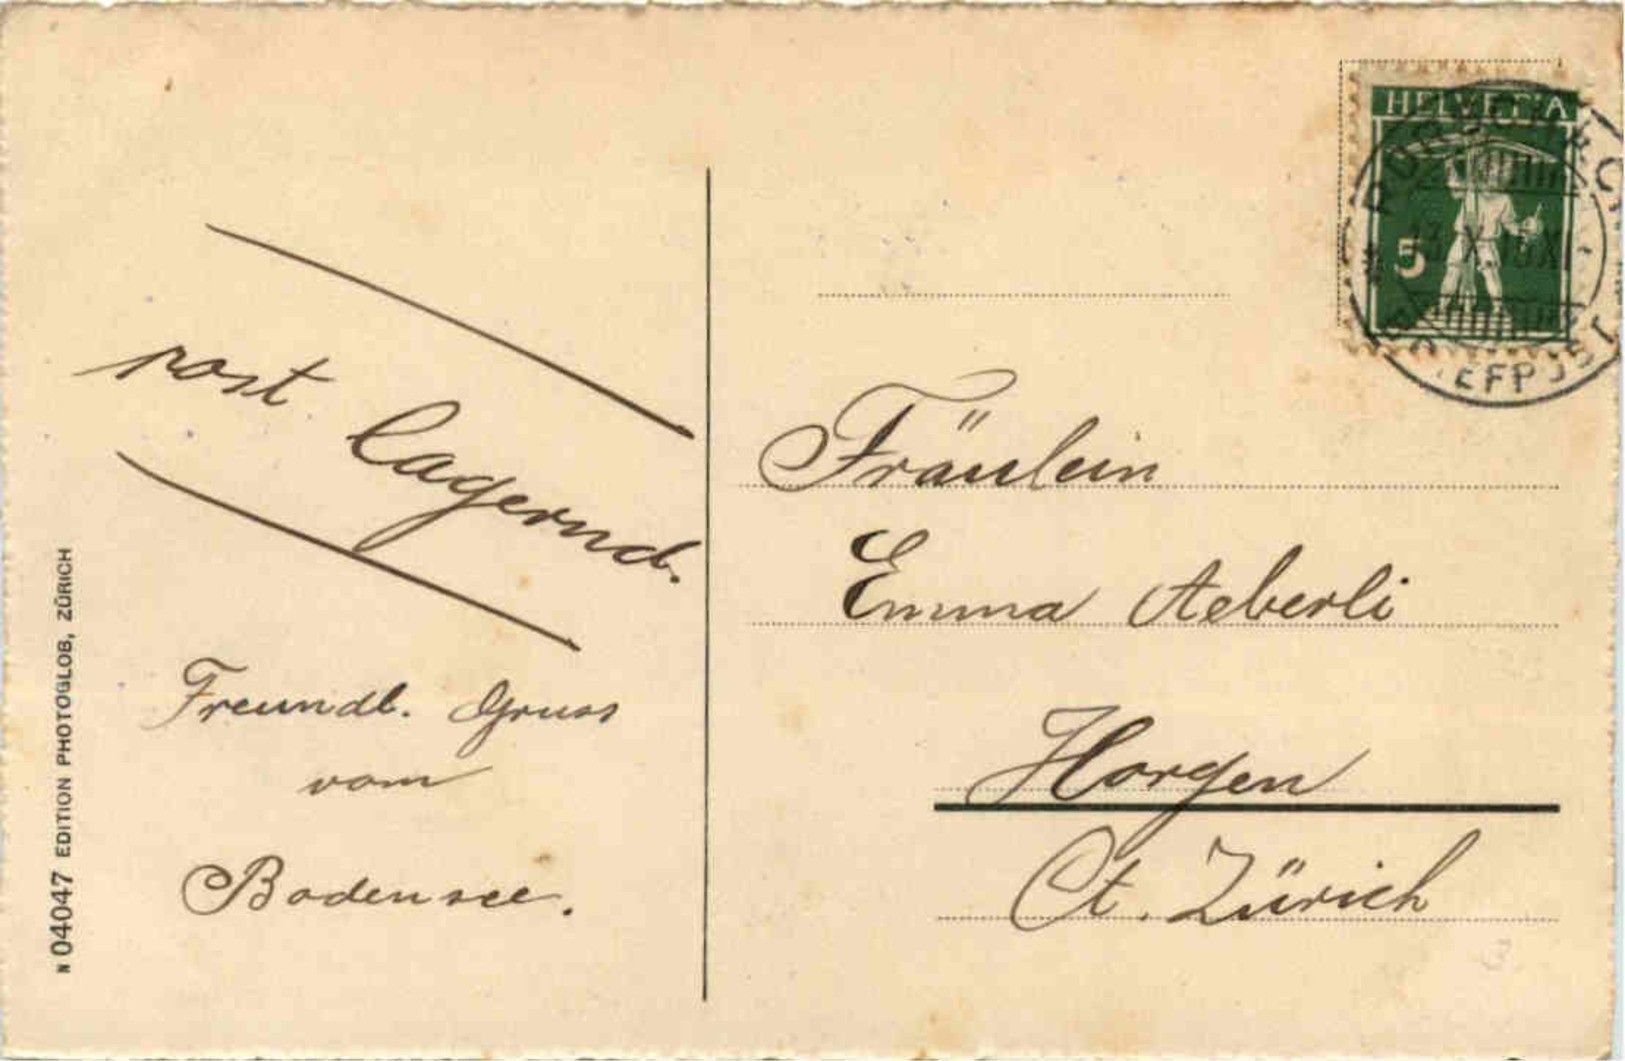 post lagernd.
Freundl. Gruss
vom
Bodensee.
N 04047 EDITION PHOTOGLOB, ZÜRICH
HELVETIA
5
RORSCHACH
BRIEFPOST
Fräulein
Emma Aeberli
Horgen
Ct. Zürich